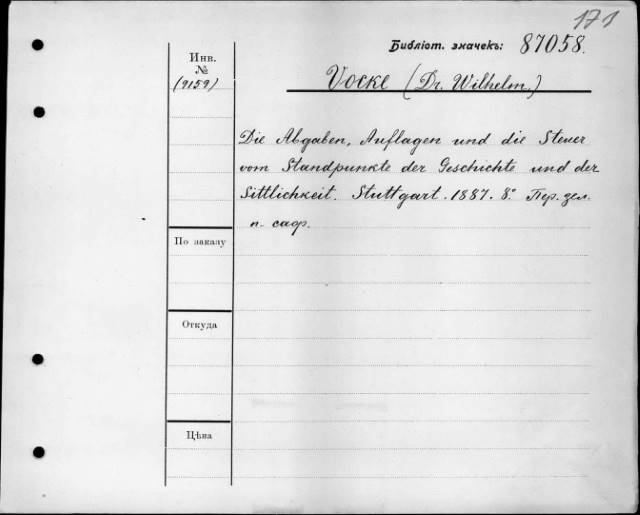 171
Библіот. значекъ: 87058.
Инв.
№
(9159)
Vocke (Dr. Wilhelm.)
Die Abgaben, Auflagen und die Steuer
vom Standpunkte der Geschichte und der
Sittlichkeit. Stuttgart. 1887. 8° Пер. зел.
п. саф.
По заказу
Откуда
Цѣна